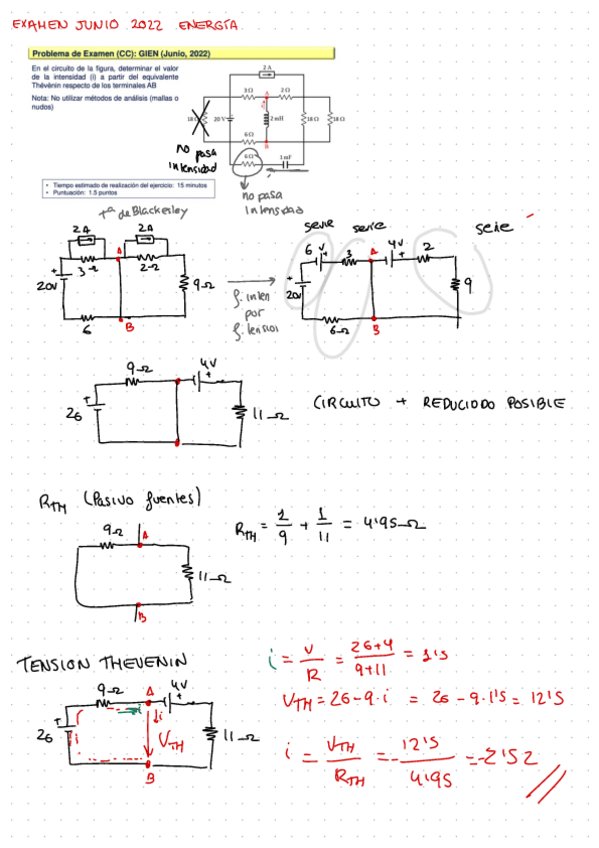 EXAMEN JUNIO 2022 ENERGÍA
Problema de Examen (CC): GIEN (Junio, 2022)
En el circuito de la figura, determinar el valor
de la intensidad (i) a partir del equivalente
Thévènin respecto de los terminales AB
Nota: No utilizar métodos de análisis (mallas o
nudos)
2 A
3 Ω
A
2 Ω
20 V
2 mH
18 Ω
18 Ω
6 Ω
B
6 Ω
1 mF
no pasa
intensidad
no pasa
intensidad
• Tiempo estimado de realización del ejercicio: 15 minutos
• Puntuación: 1.5 puntos
Tª de Blackesley
2A
2A
A
3Ω
2Ω
+
20V
9Ω
6
B
f. inten
por
f. tension
serie
serie
serie
6 V
+
3
A
4V
+
2
+
20V
9
6Ω
B
9Ω
4V
+
+
26
11Ω
CIRCUITO + REDUCIODO POSIBLE
RTH (Pasivo fuentes)
9Ω
A
11Ω
B
RTH = 1/9 + 1/11 = 4'95Ω
TENSION THEVENIN
9Ω
A
4V
+
i
↓i
+
26
i
VTH
11Ω
B
i = V/R = 26+4/9+11 = 1'5
VTH = 26-9·i = 26-9·1'5 = 12'5
i = VTH/RTH = -12'5/4'95 = -2'52